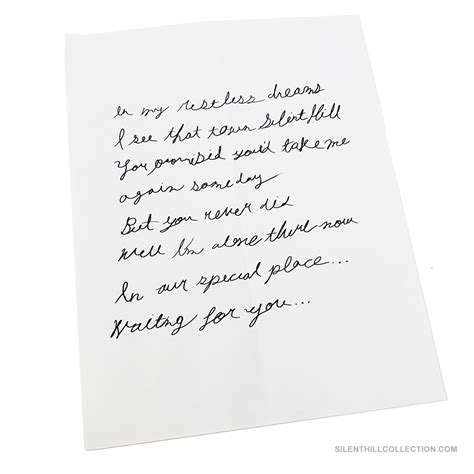 In my restless dreams
I see that town Silent Hill
You promised you'd take me
again someday
But you never did
Well I'm alone there now
In our special place...
Waiting for you...
SILENTHILLCOLLECTION.COM